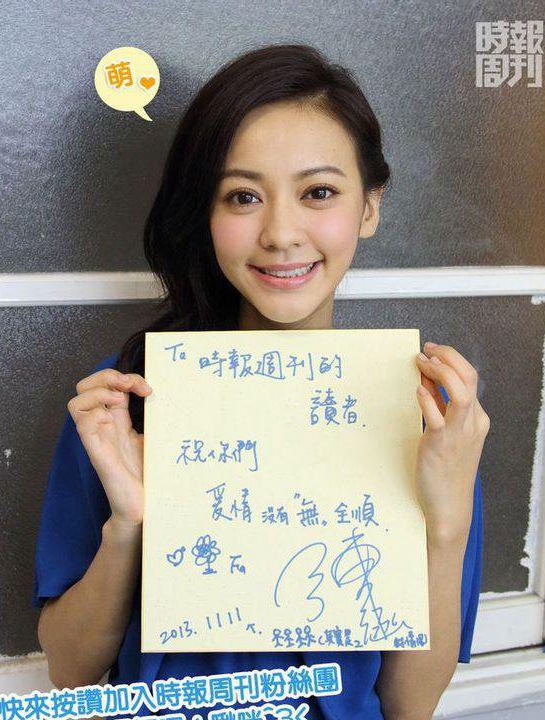 時報
周刊
萌
To 時報週刊的
讀者.
祝你們
愛情 沒有"無"全順.
2013. 11.11
快來按讚加入時報周刊粉絲團